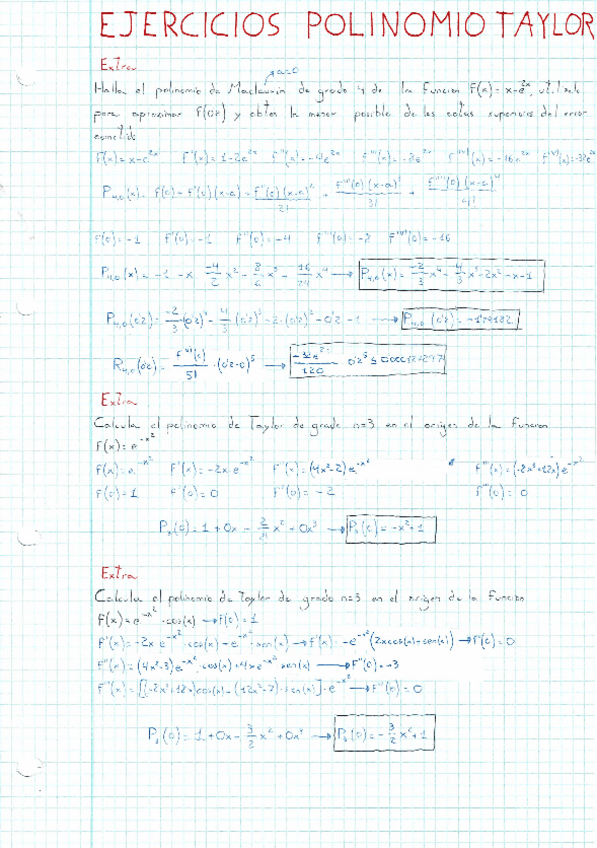 EJERCICIOS POLINOMIO TAYLOR
Extra
a=0
Halla el polinomio de Maclaurin de grado 4 de la funcion F(x)=x-e^2x, utilizalo
para aproximar f(0'2) y obten la menor posible de las cotas superiores del error
cometido
F(x)=x-e^2x F'(x)=1-2e^2x F''(x)=-4e^2x F'''(x)=-8e^2x F^(IV)(x)=-16e^2x F^(V)(x)=-32e^2x
F(0)=-1 F'(0)=-1 F''(0)=-4 F'''(0)=-8 F^(IV)(0)=-16
P4,0(x)=-1-x-4/2 x²-8/6 x³-16/24 x⁴ → P4,0(x)=-2/3 x⁴-4/3 x³-2x²-x-1
P4,0(0'2)=-2/3(0'2)⁴-4/3(0'2)³-2·(0'2)²-0'2-1 →
Extra
Calcula el polinomio de Taylor de grado n=3 en el origen de la funcion
F(x)=e^-x²
F(x)=e^-x² F'(x)=-2x e^-x² F''(x)=(4x²-2)e^-x² F'''(x)=(-8x³+12x)e^-x²
F(0)=1 F'(0)=0 F''(0)=-2 F'''(0)=0
P3(0)=1+0x-2/2 x²+0x³ → P3(0)=-x²+1
Extra
Calcula el polinomio de Taylor de grado n=3 en el origen de la funcion
F(x)=e^-x²·cos(x) → F(0)=1
F'(x)=-2x e^-x²·cos(x)-e^-x²·sen(x) → F'(x)=-e^-x²(2xcos(x)+sen(x)) → F'(0)=0
F''(x)=(4x²-3)e^-x²·cos(x)+4xe^-x²·sen(x) → F''(0)=-3
F'''(x)=[(-8x³+18x)cos(x)-(12x²-7)·sen(x)]·e^-x² → F'''(0)=0
P3(0)=1+0x-3/2 x²+0x³ → P3(0)=-3/2 x²+1